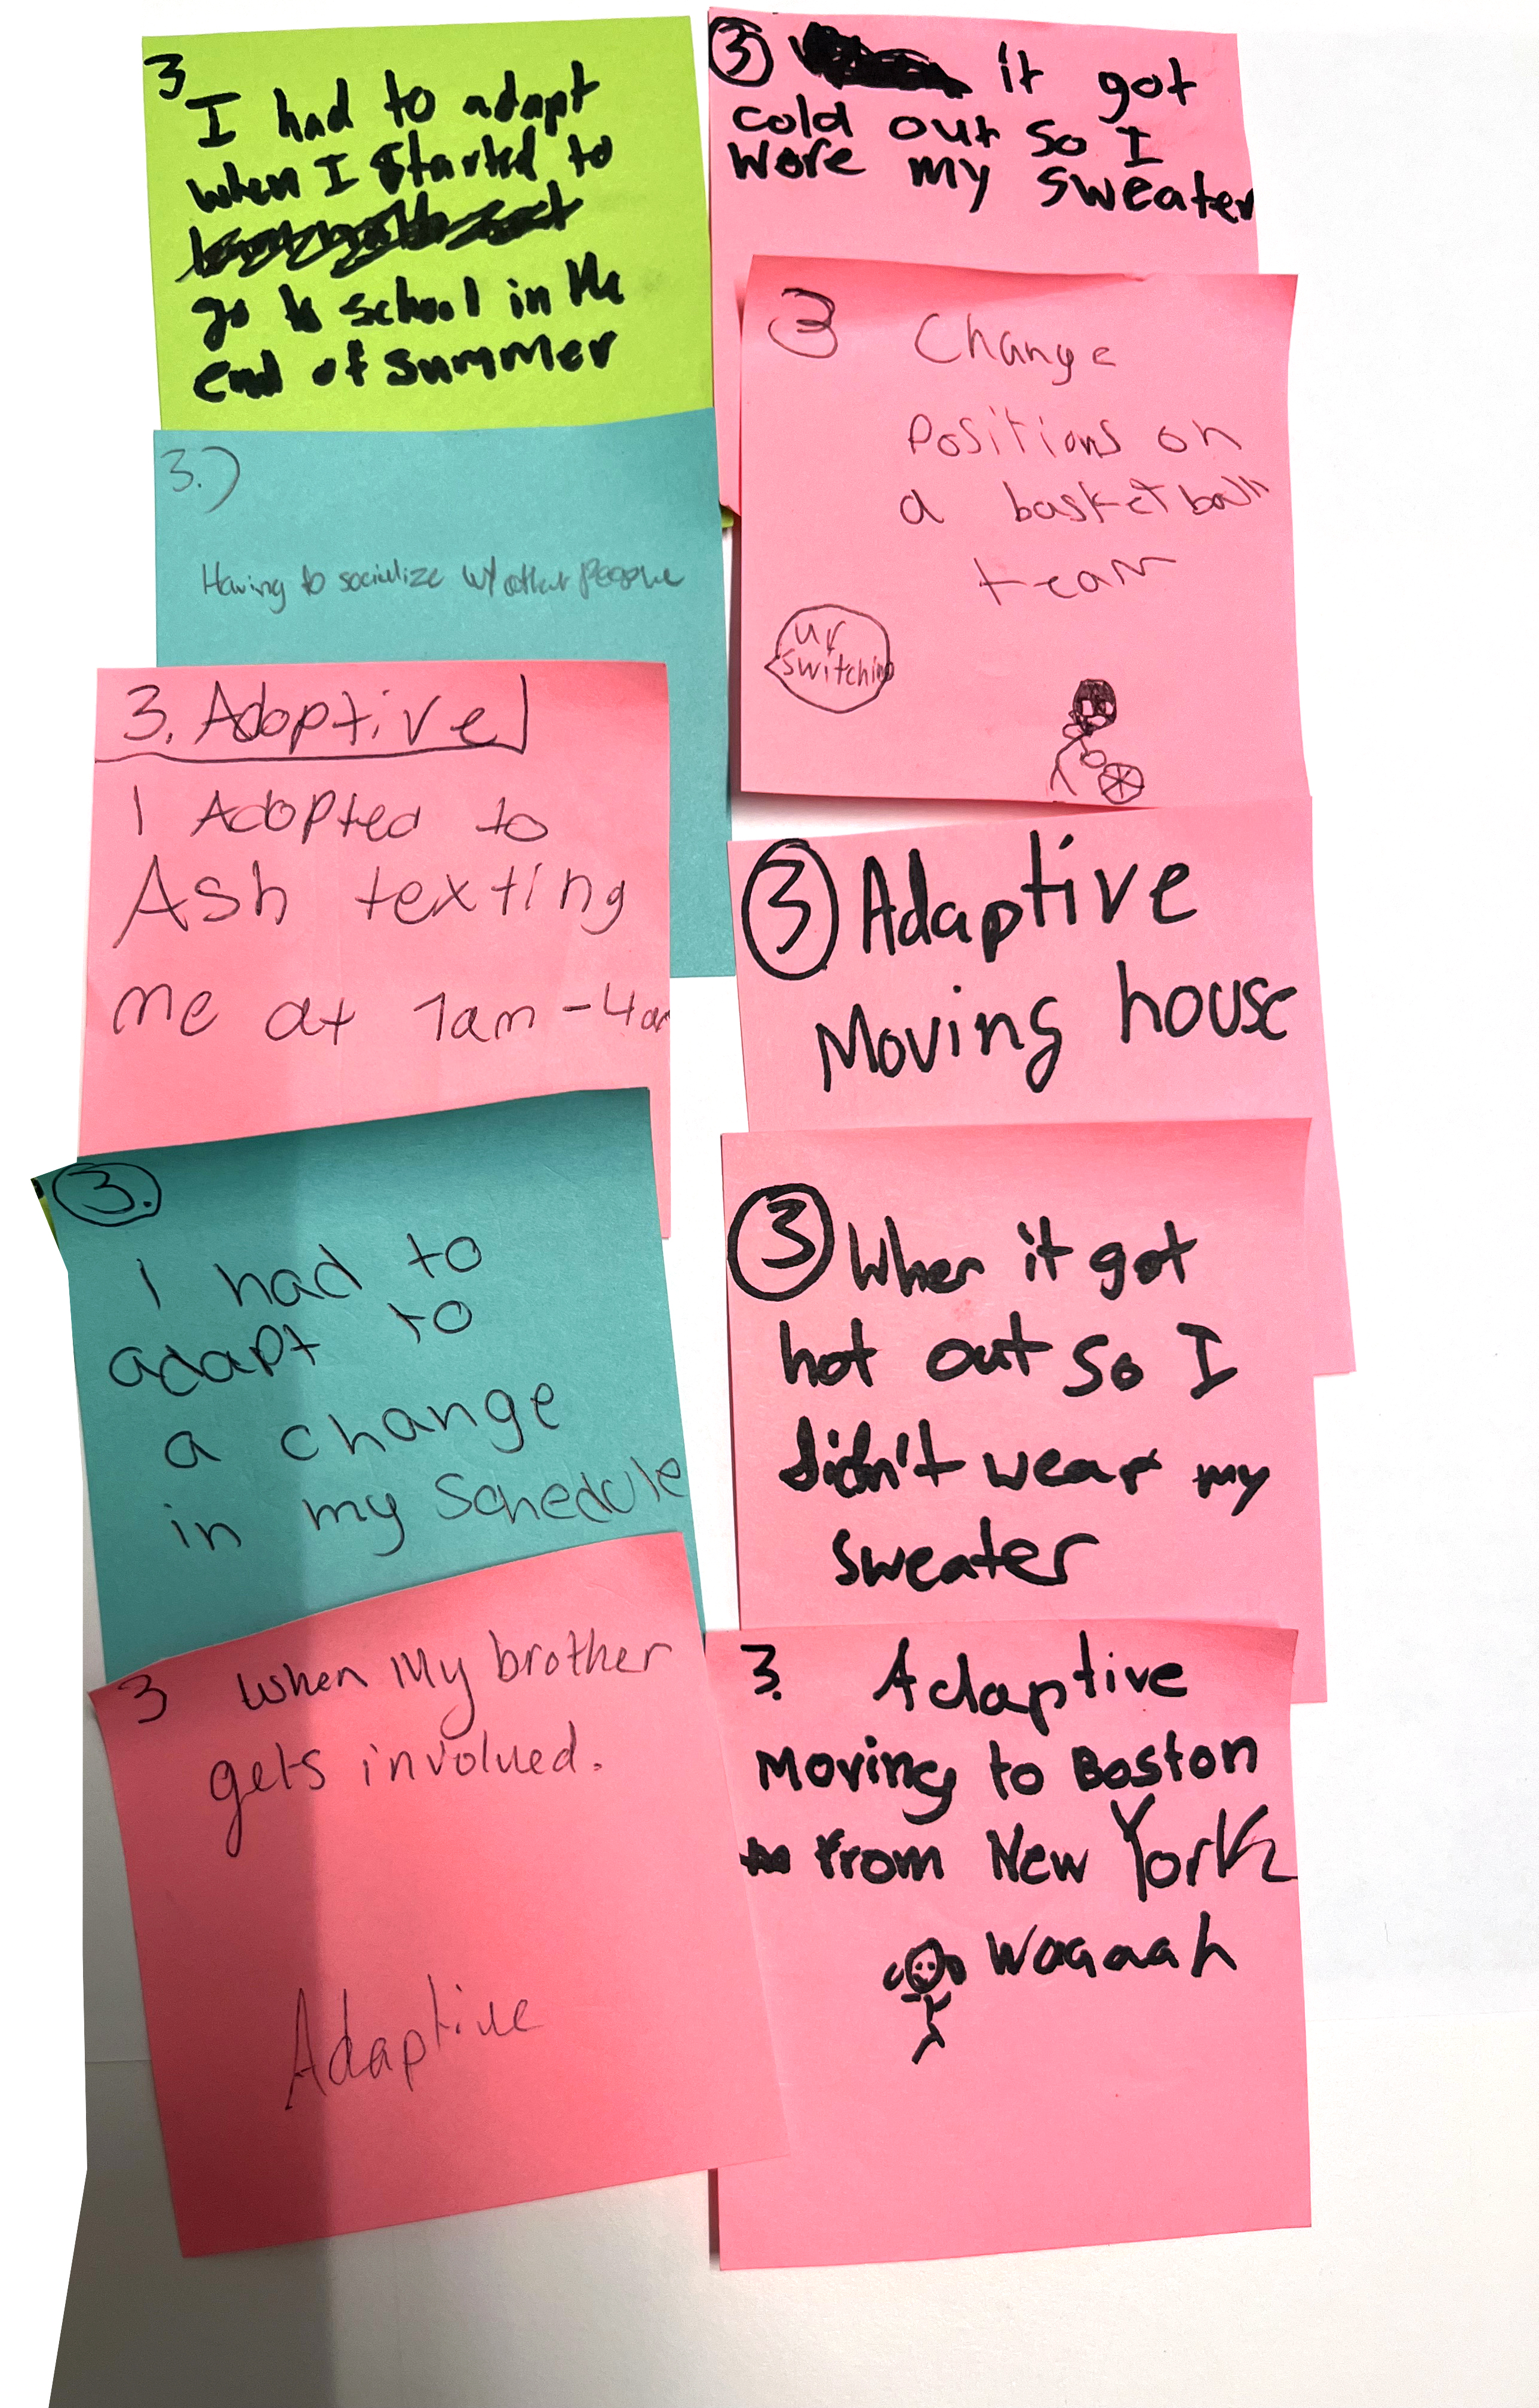 3
I had to adapt
when I started to
go to school in the
end of summer
3.)
Having to socialize w/ other people
3. Adoptive
I Adopted to
Ash texting
me at 1am - 4am
3.
I had to
adapt to
a change
in my Schedule
3 When My brother
gets involved.
Adaptive
3 it got
cold out so I
wore my sweater
3 Change
Positions on
a basketball
team
ur
switching
3 Adaptive
Moving house
3 When it got
hot out so I
didn't wear my
sweater
3. Adaptive
Moving to Boston
from New York
Waaaah